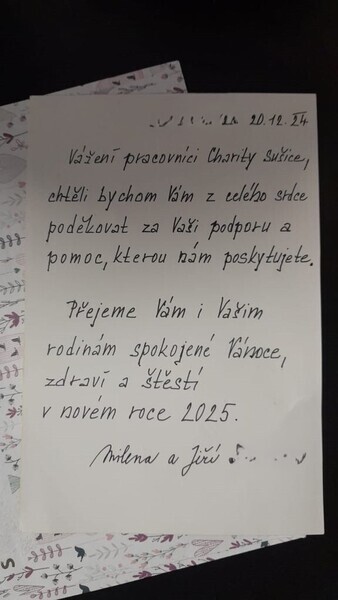 20.12.24
Vážení pracovníci Charity Sušice,
chtěli bychom Vám z celého srdce
poděkovat za Vaši podporu a
pomoc, kterou nám poskytujete.
Přejeme Vám i Vašim
rodinám spokojené Vánoce,
zdraví a štěstí
v novém roce 2025.
Milena a Jiří